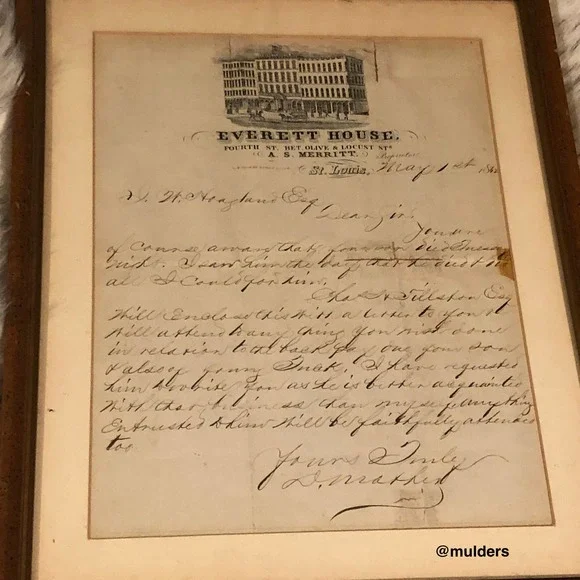 EVERETT HOUSE.
FOURTH ST. BET. OLIVE & LOCUST STS
A. S. MERRITT. Proprietor
St. Louis, May 1st
Hoagland Esq
Dear Sir
You are
of course aware that your son died
Night. I saw him the day that he died
all I could for him.
Chas H Tillston Esq
Will Enclose this with a letter to you &
Will attend to any thing you wish done
in relation to the back pay due your son
& also of your I have requested
him to write you as he is better acquainted
With that business than myself Anything
Entrusted to him will be faithfully attended
too
Yours Truly
D. Mather
@mulders